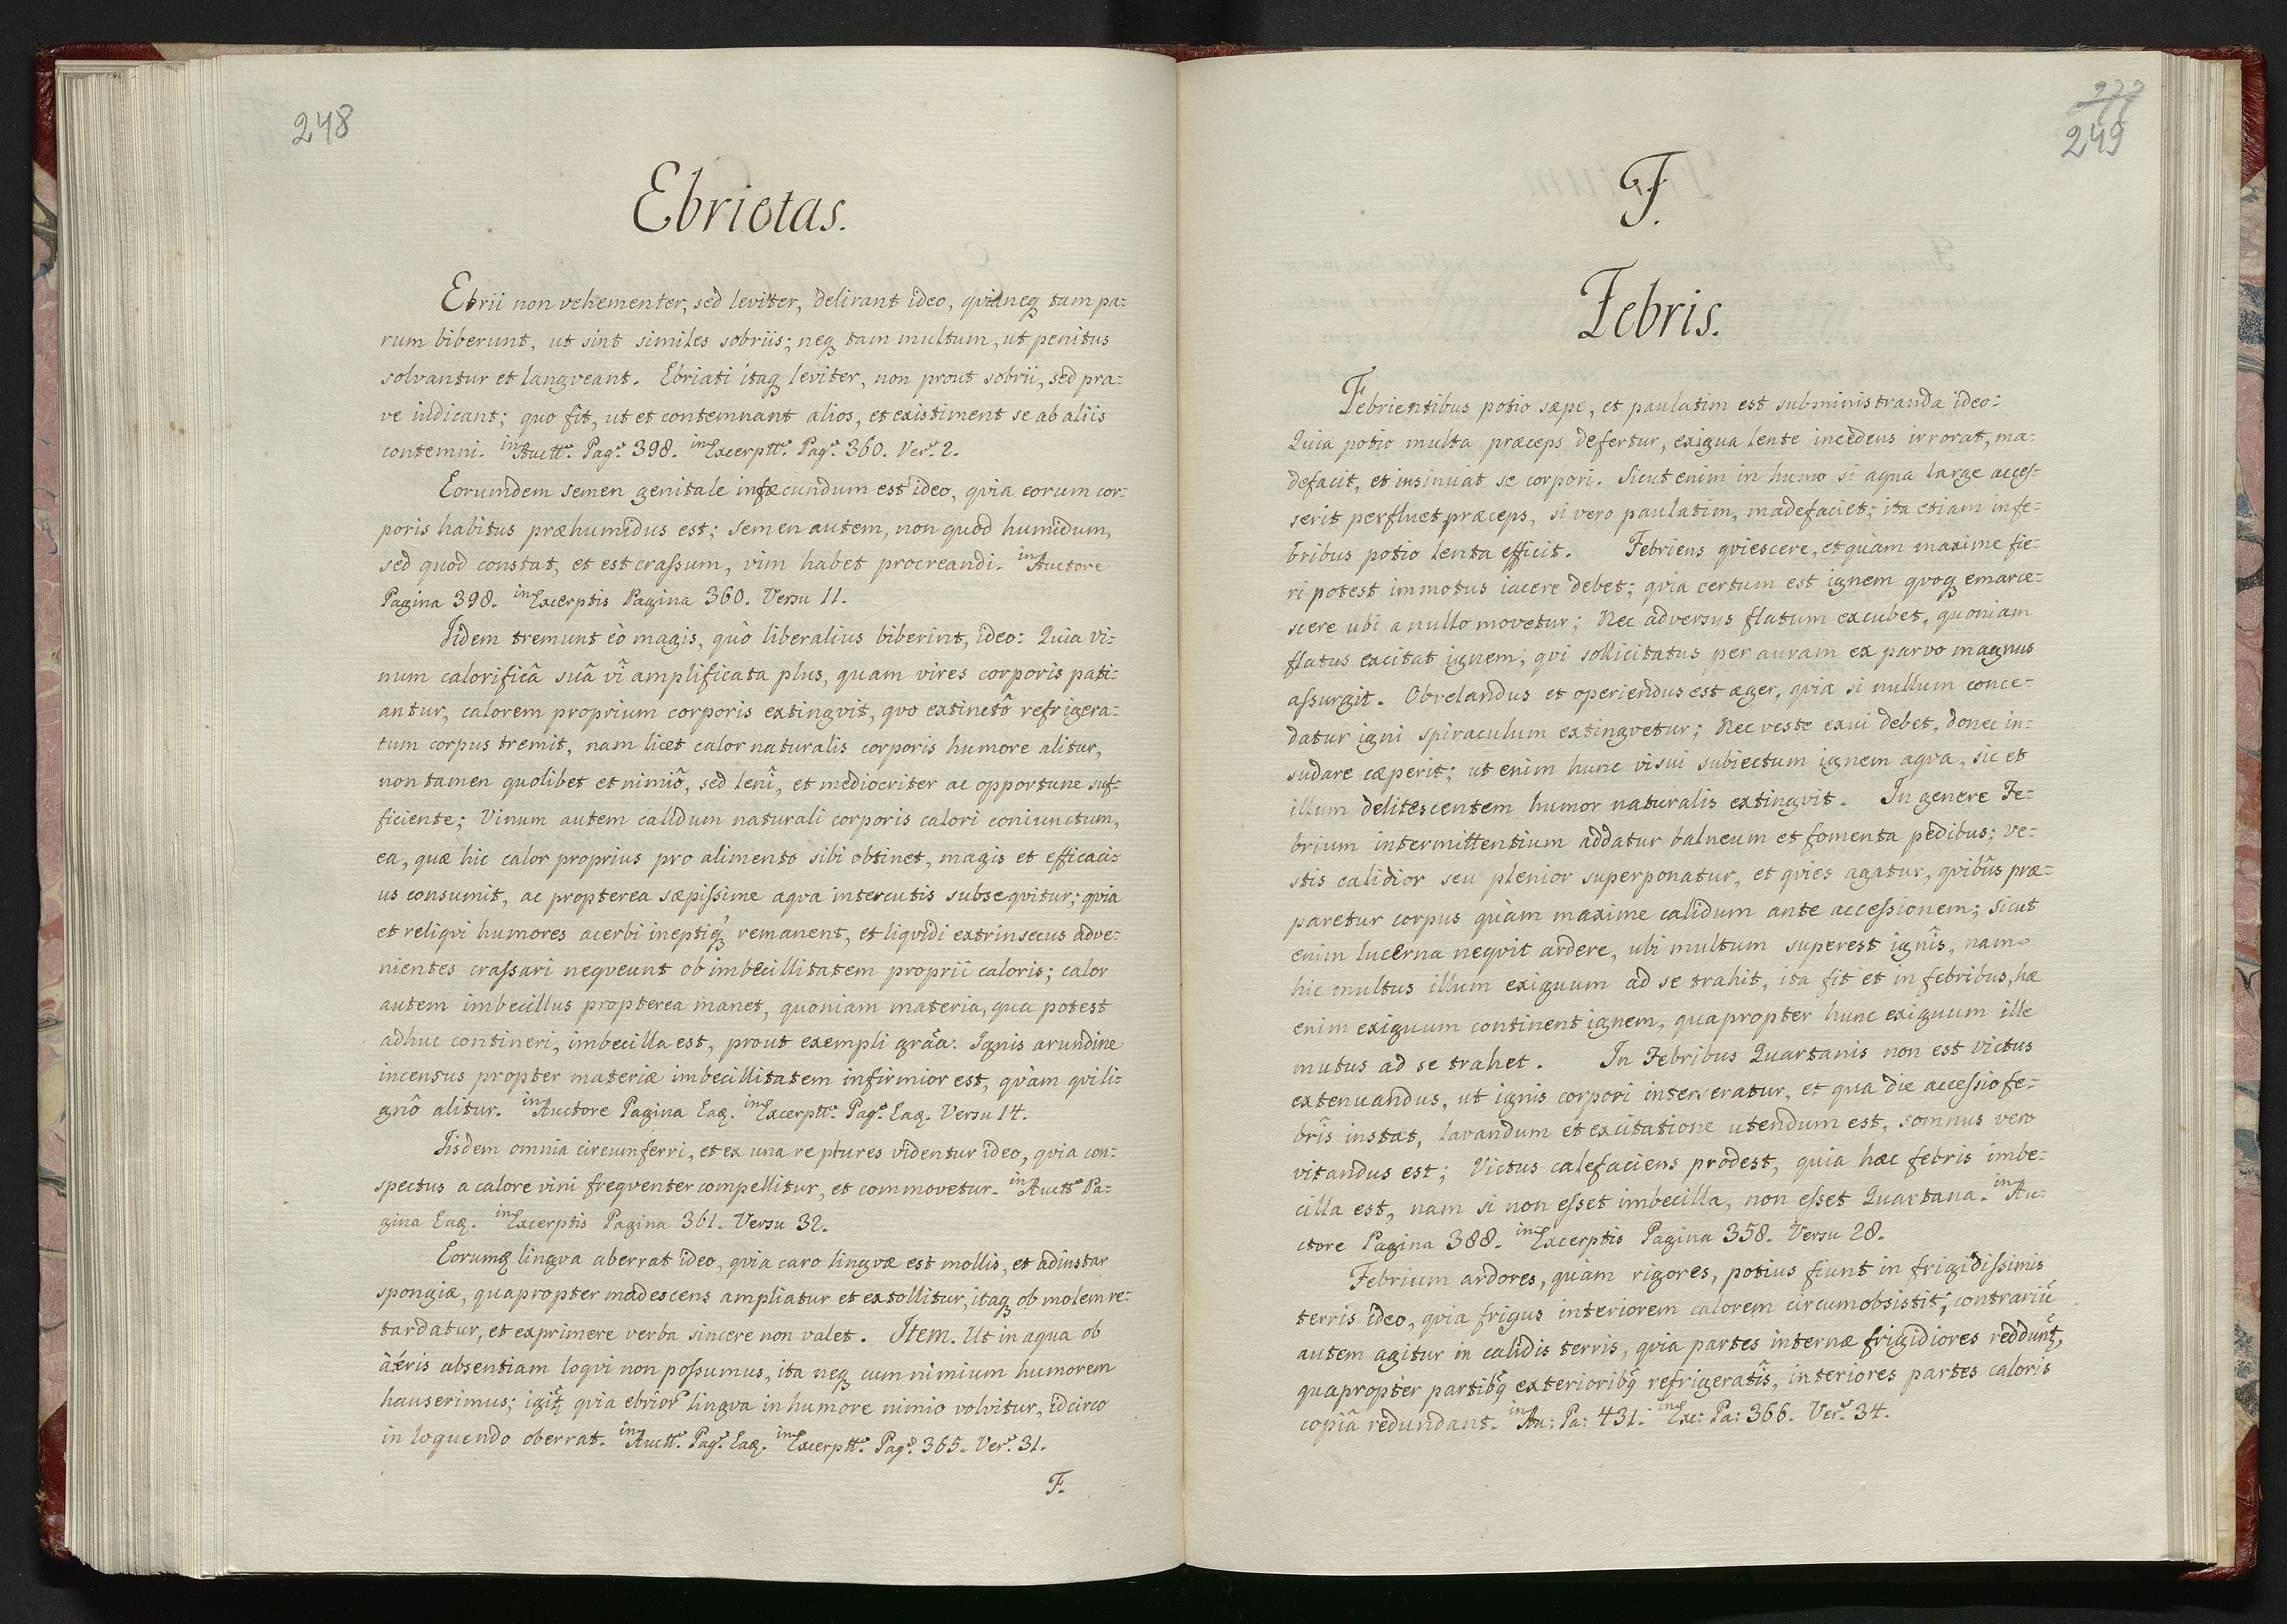 248
Ebrietas.
Ebrii non vehementer, sed leviter, delirant ideo, qvia neq tam pa:
rum biberunt, ut sint similes sobriis; neq tam multum, ut penitus
solvantur et langveant. Ebriati itaq leviter, non prout sobrii, sed pra:
ve iudicant; quo fit, ut et contemnant alios, et existiment se ab aliis
contemni. in Auctt.e Pag.a 398. in Excerptt.s Pag.a 360. Ver.u 2.
Eorumdem semen genitale infæcundum est ideo, qvia eorum cor:
poris habitus præhumidus est; semen autem, non quod humidum,
sed quod constat, et est crassum, vim habet procreandi. in Auctore
Pagina 398. in Excerptis Pagina 360. Versu 11.
Iidem tremunt eò magis, quò liberalius biberint, ideo: Quia vi:
num calorificâ suâ vî amplificata plus, quam vires corporis pati:
antur, calorem proprium corporis extingvit, qvo extinctô refrigera:
tum corpus tremit, nam licet calor naturalis corporis humore alitur,
non tamen quolibet et nimiô, sed lenî, et mediocriter ac opportune suf:
ficiente; Vinum autem calidum naturali corporis calori coniunctum,
ea, quæ hic calor proprius pro alimento sibi obtinet, magis et efficaci:
us consumit, ac propterea sæpissime aqva intercutis subseqvitur; qvia
et reliqvi humores acerbi ineptiq remanent, et liqvidi extrinsecus adve:
nientes crassari neqveunt ob imbecillitatem proprii caloris; calor
autem imbecillus propterea manet, quoniam materia, qua potest
adhuc contineri, imbecilla est, prout exempli grãa. Ignis arundine
incensus propter materiæ imbecillitatem infirmior est, qvàm qvi li:
gnô alitur. in Auctore Pagina Eaq. in Excerptt.s Pag.a Eaq. Versu 14.
Iisdem omnia circumferri, et ex una re plures videntur ideo, qvia con:
spectus a calore vini freqventer compellitur, et commovetur. in Auctt.e Pa:
gina Eaq. in Excerptis Pagina 361. Versu 32.
Eorumq lingva aberrat ideo, qvia caro lingvæ est mollis, et adinstar
spongiæ, quapropter madescens ampliatur et extollitur, itaq ob molem re:
tardatur, et exprimere verba sincere non valet. Item. Ut in aqua ob
àéris absentiam loqvi non possumus, ita neq cum nimium humorem
hauserimus; igitꝛ qvia ebrior lingva in humore nimio volvitur, idcirco
in loquendo oberrat. in Auctt.e Pag.a Eaq. in Excerptt.s Pag.a 365. Ver.u 31.
F.
249
F.
Febris.
Febrientibus potio sæpe, et paulatim est subministranda ideo:
Quia potio multa præceps defertur, exigua lente incedens irrorat, ma:
defacit, et insinuat se corpori. Sicut enim in humo si aqua large acces-
serit perfluet præceps, si vero paulatim, madefaciet; ita etiam in fe:
bribus potio lenta efficit. Febriens qviescere, et quàm maxime fie:
ri potest immotus iacere debet; qvia certum est ignem qvoq emarce:
scere ubi a nullo movetur; Nec adversus flatum excubet, quoniam
flatus excitat ignem, qvi sollicitatus per auram ex parvo magnus
assurgit. Obvelandus et operiendus est æger, qvia si nullum conce:
datur igni spiraculum extingvetur; Nec veste exui debet, donec in:
sudare cæperit; ut enim hunc visui subiectum ignem aqva, sic et
illum delitescentem humor naturalis extingvit. In genere Fe:
brium intermittentium addatur balneum et fomenta pedibus; ve:
stis calidior seu plenior superponatur, et qvies agatur, qvibûs præ:
paretur corpus quàm maxime calidum ante accessionem; sicut
enim lucerna neqvit ardere, ubi multum superest ignîs, nam
hic multus illum exiguum ad se trahit, ita fit et in febribus, hæ
enim exiguum continent ignem, quapropter hunc exiguum ille
mutus ad se trahet. In Febribus Quartanis non est victus
extenuandus, ut ignis corpori interseratur, et qua die accessio fe:
brîs instat, lavandum et excitatione utendum est, somnus vero
vitandus est; Victus calefaciens prodest, quia hæc febris imbe:
cilla est, nam si non esset imbecilla, non esset Quartana. in Au:
ctore Pagina 388. in Excerptis Pagina 358. Versu 28.
Febrium ardores, quàm rigores, potius fiunt in frigidissimis
terris ideo, qvia frigus interiorem calorem circumobsistit; contrariũ
autem agitur in calidis terris, qvia partes internæ frigidiores redduntꝛ,
quapropter partibq exterioribq refrigeratîs, interiores partes caloris
copiâ redundant. in Au: Pa: 431. in Exc: Pa: 366. Ver.u 34.